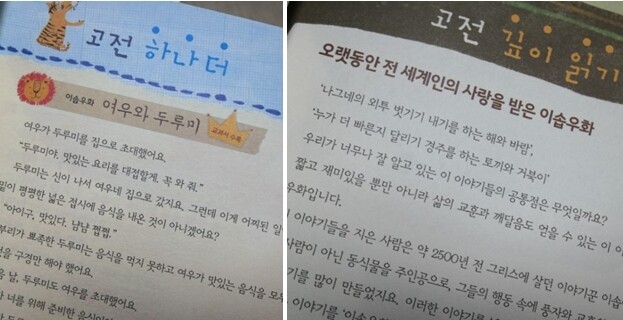 고전 하나 더
이솝우화 여우와 두루미
교과서 수록
여우가 두루미를 집으로 초대했어요.
"두루미야. 맛있는 요리를 대접할게. 꼭 와 줘."
두루미는 신이 나서 여우네 집으로 갔지요. 그런데 이게 어찌된 일
밑이 평평한 넓은 접시에 음식을 내온 것이 아니겠어요?
"아이구, 맛있다. 냠냠 쩝쩝."
부리가 뾰족한 두루미는 음식을 먹지 못하고 여우가 맛있는 음식을 모두
구경만 해야 했어요.
날, 두루미도 여우를 초대했어요.
너를 위해 준비한 음식이
고전 깊이 읽기
오랫동안 전 세계인의 사랑을 받은 이솝우화
'나그네의 외투 벗기기 내기를 하는 해와 바람',
'누가 더 빠른지 달리기 경주를 하는 토끼와 거북이'
우리가 너무나 잘 알고 있는 이 이야기들의 공통점은 무엇일까요?
짧고 재미있을 뿐만 아니라 삶의 교훈과 깨달음도 얻을 수 있는 이
우화입니다.
이야기들을 지은 사람은 약 2500년 전 그리스에 살던 이야기꾼 이솝
사람이 아닌 동식물을 주인공으로, 그들의 행동 속에 풍자와 교훈
기를 많이 만들었지요. 이러한 이야기를
이야기를 '이솝우화